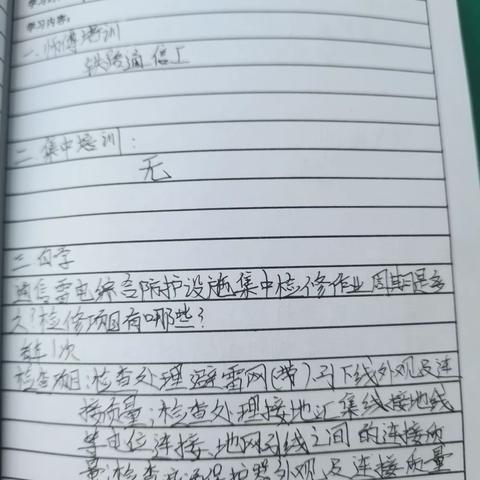 学习内容：
一.师傅培训
铁路通信工
二.集中培训：
无
三.自学
通信雷电综合防护设施集中检修作业周期是多
久？检修项目有哪些？
每年1次
检查项目：检查处理避雷网(带)引下线外观及连
接质量；检查处理接地汇集线接地线
等电位连接、地网引线之间的连接质
量；检查 保护器外观及连接质量